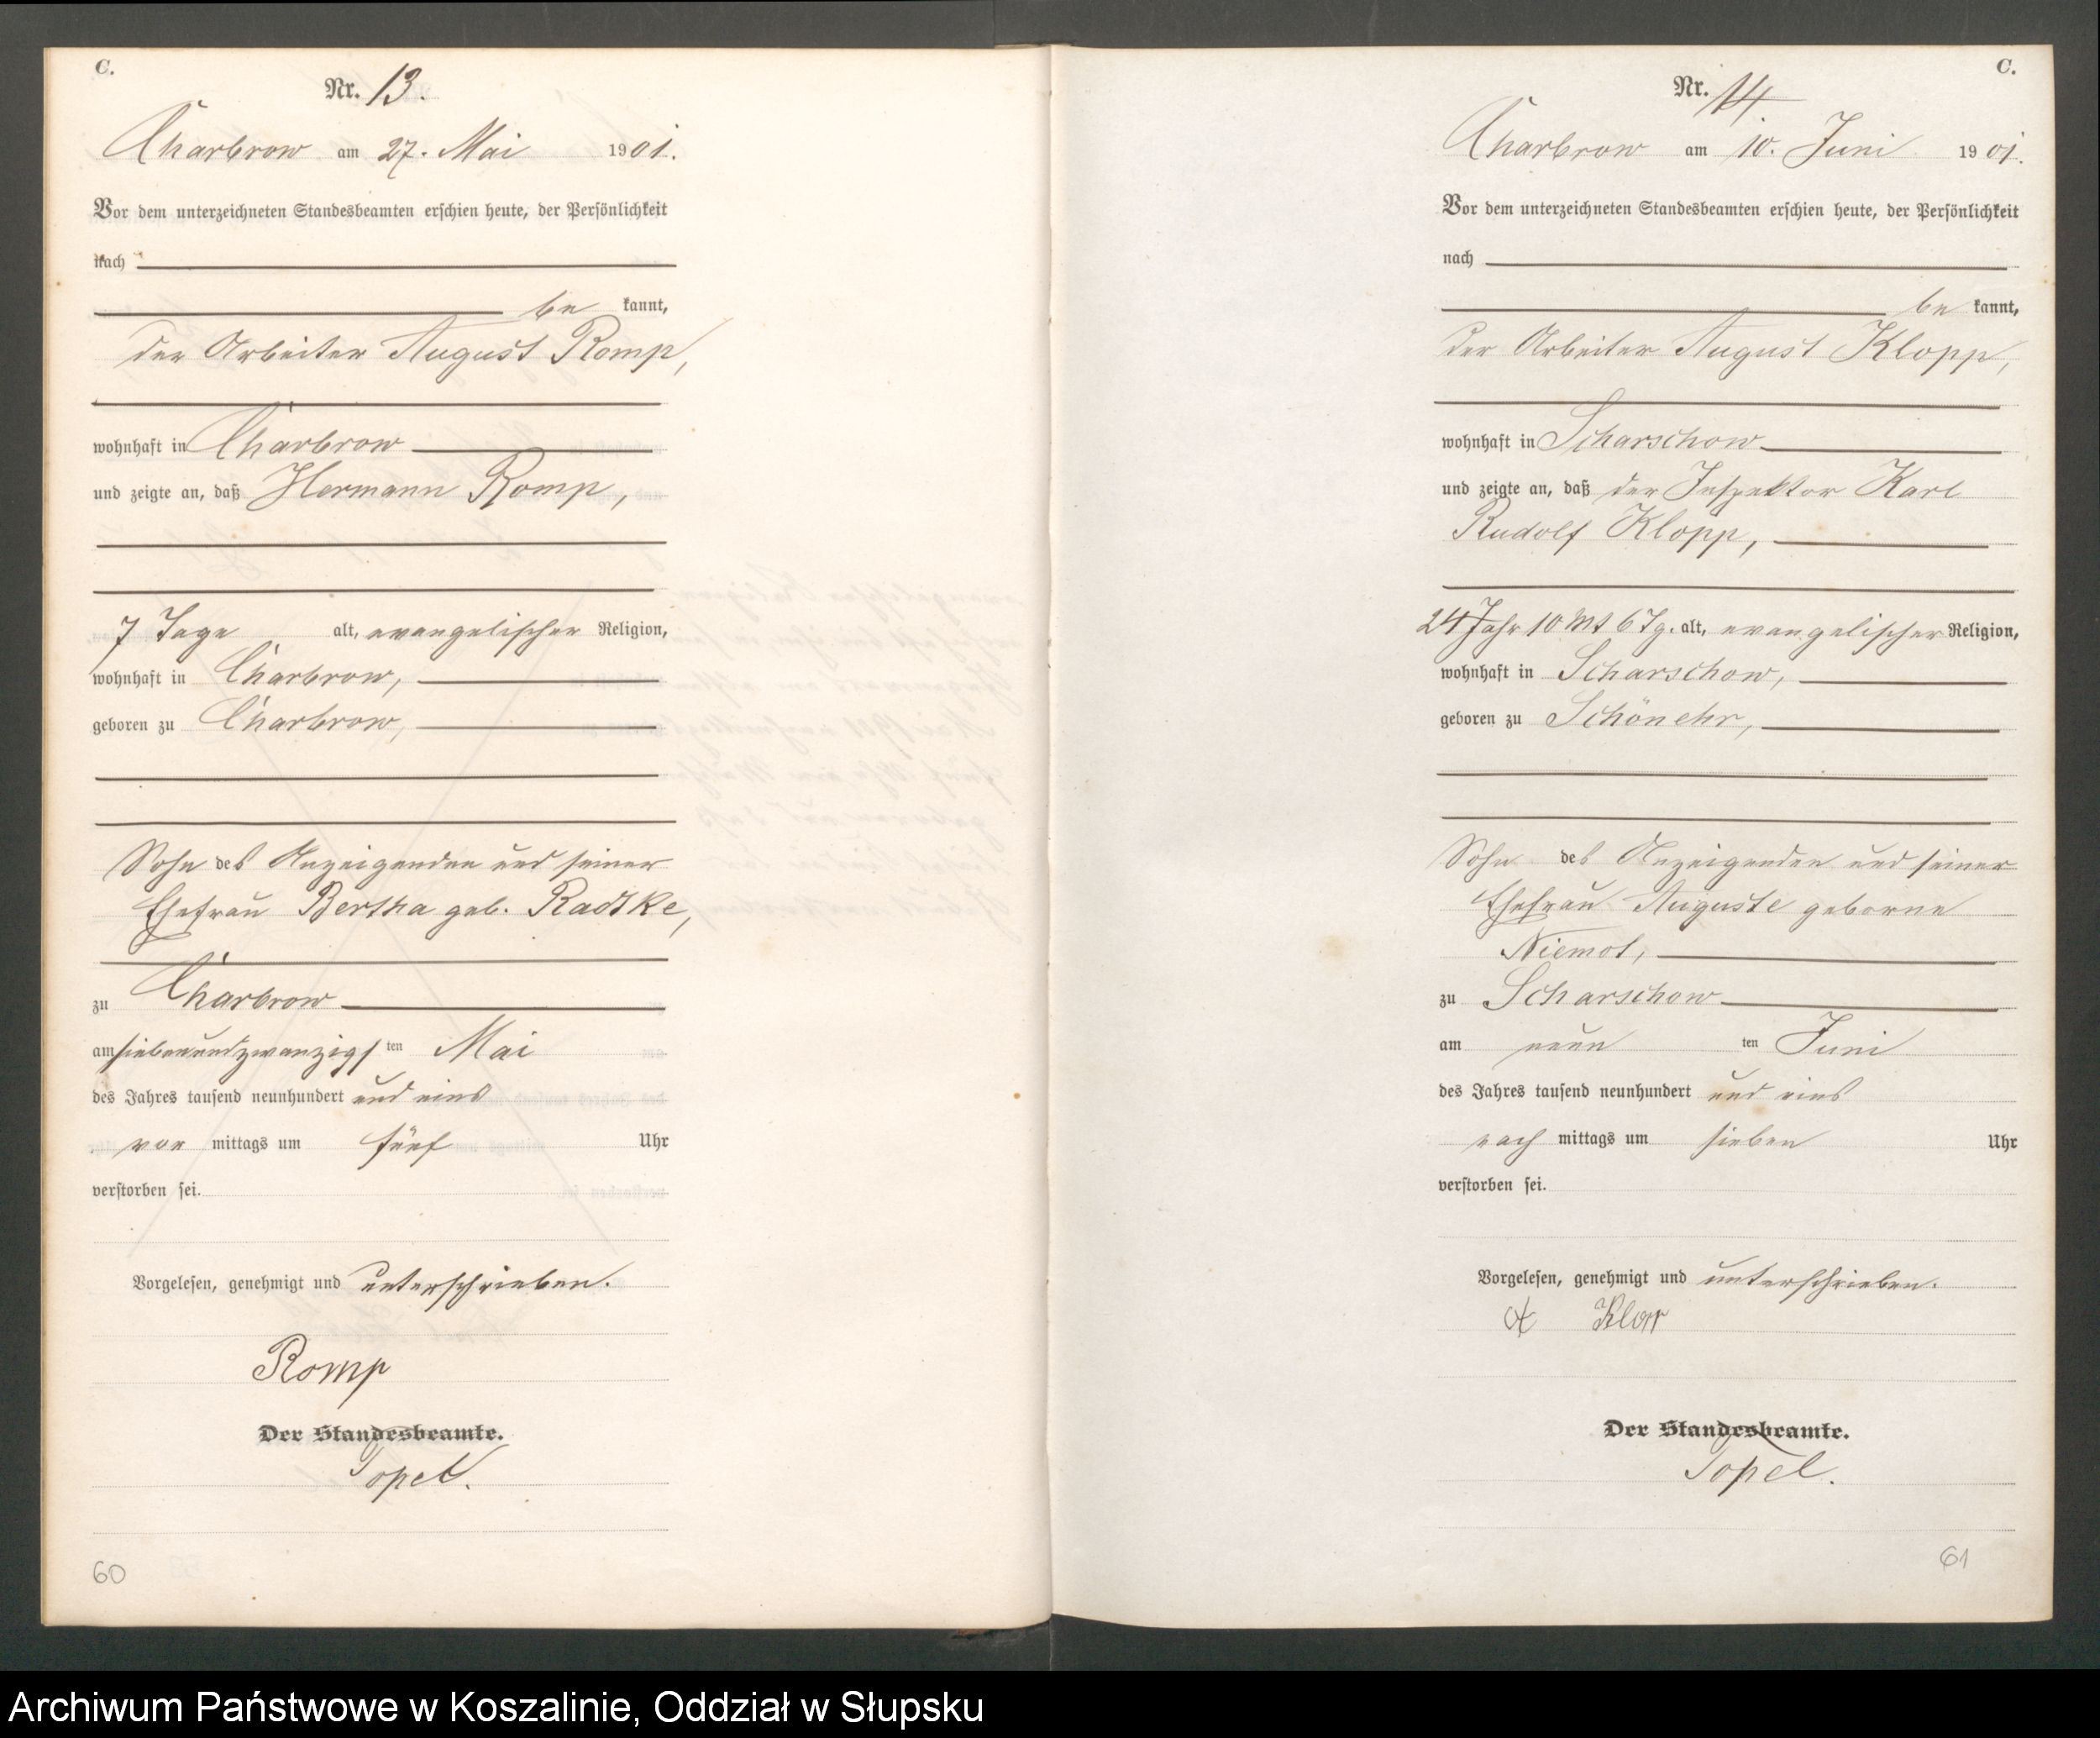 C.
Nr. 13.
Charbrow am 27. Mai 1901.
Vor dem unterzeichneten Standesbeamten erschien heute, der Persönlichkeit
nach
be kannt,
der Arbeiter August Romp,
wohnhaft in Charbrow
und zeigte an, daß Hermann Romp,
7 Tage alt, evangelischer Religion,
wohnhaft in Charbrow,
geboren zu Charbrow,
Sohn des Anzeigenden und seiner
Ehefrau Bertha geb. Radtke,
zu Charbrow
am siebenundzwanzigsten Mai
des Jahres tausend neunhundert und eins
vor mittags um fünf Uhr
verstorben sei.
Vorgelesen, genehmigt und unterschrieben.
Romp
Der Standesbeamte.
Topel.
60
C.
Nr. 14
Charbrow am 10. Juni 1901.
Vor dem unterzeichneten Standesbeamten erschien heute, der Persönlichkeit
nach
be kannt,
der Arbeiter August Klopp,
wohnhaft in Scharschow
und zeigte an, daß der Inspektor Karl
Rudolf Klopp,
24 Jahr 10 Mt 6 Tg. alt, evangelischer Religion,
wohnhaft in Scharschow,
geboren zu Schönehr,
Sohn des Anzeigenden und seiner
Ehefrau Auguste geborne
zu Scharschow
am neun ten Juni
des Jahres tausend neunhundert und eins
nach mittags um sieben Uhr
verstorben sei.
Vorgelesen, genehmigt und unterschrieben.
A Klopp
Der Standesbeamte.
Topel.
61
Archiwum Państwowe w Koszalinie, Oddział w Słupsku